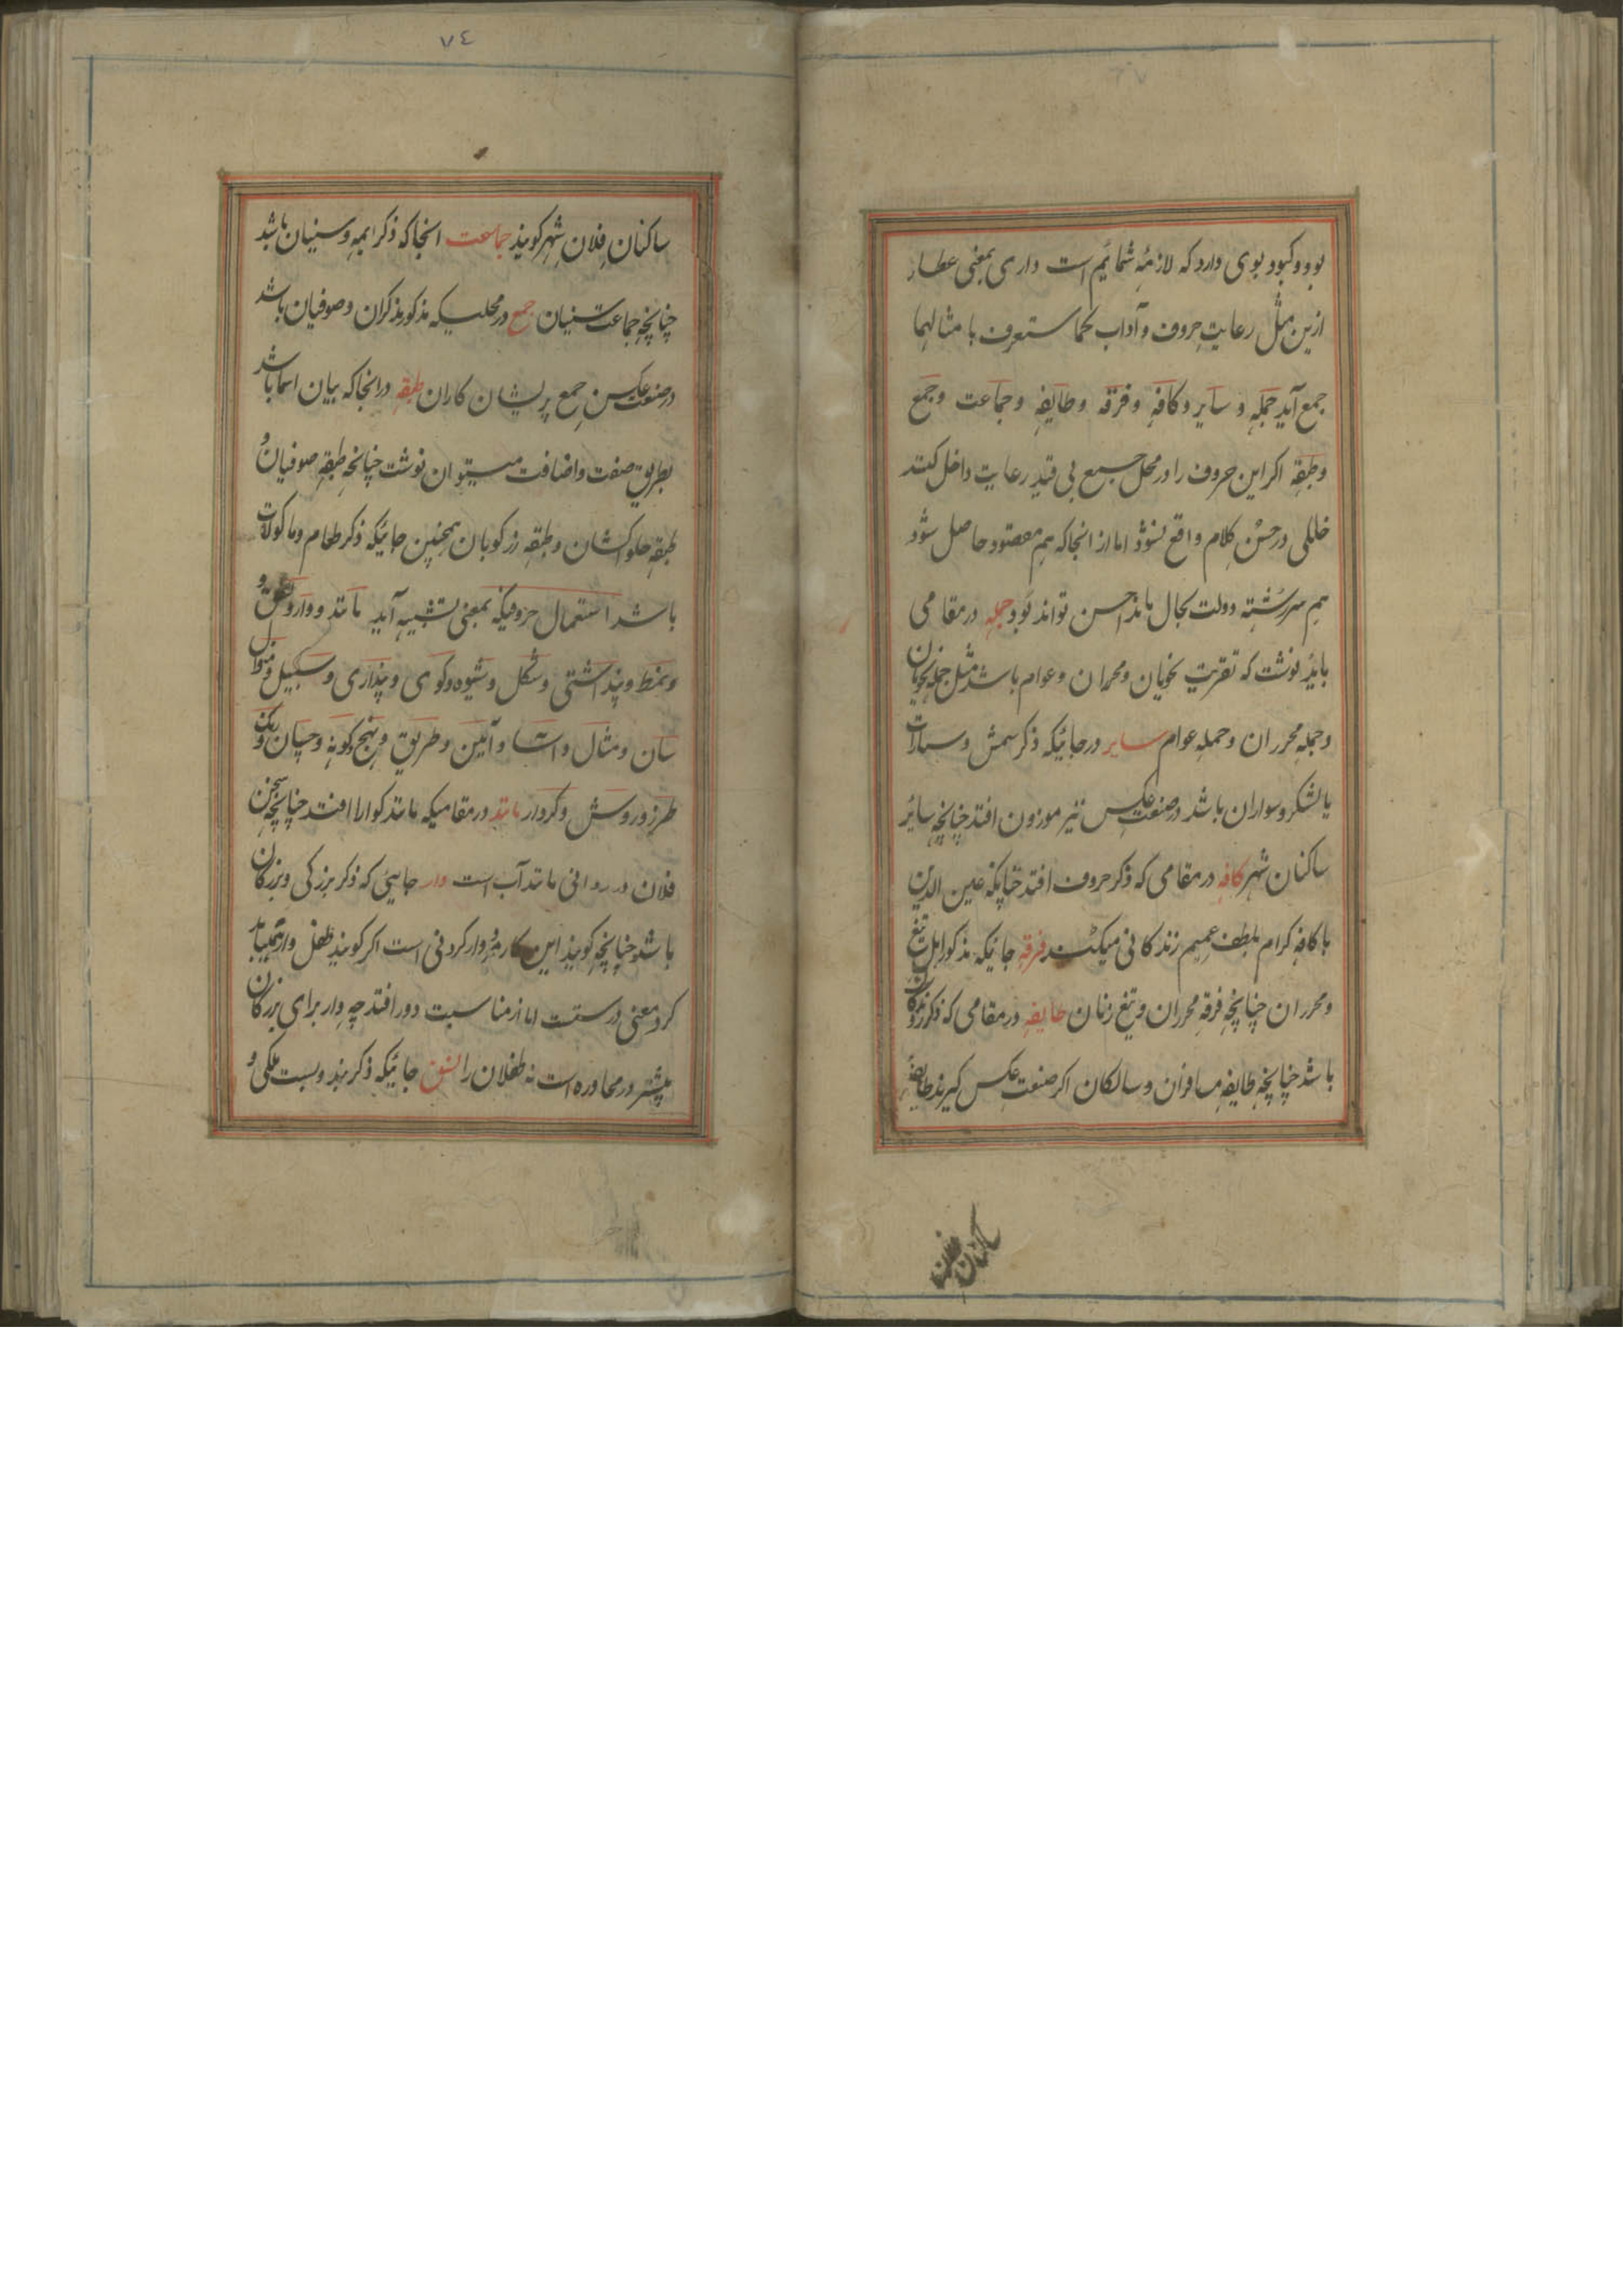 بو و وکبود بوی دارد که لازمهٔ شمائم است داری بمعنی عطار
ازین مثل رعایت حروف و آداب با مثالها
جمع آید جمله و سایر و کافه و فرقه و طایفه و جماعت و جمع
و طبقه اکر این حروف را در محل جمیع بی قید رعایت داخل کنند
خللی در حسن کلام واقع نشود اما از انجا که هم مقصود حاصل شود
هم سررشته دولت بحال ماند احسن تواند بود جمله در مقامی
باید نوشت که تقریب نحویان و محرران و عوام باشد مثل جمله نحویان
و جمله محرران و جمله عوام سایر در جائیکه ذکر شمش و سیارات
یا لشکر و سواران باشد در صنعت عکس نیز موزون افتد چنانچه سائر
ساکنان شهر کافه در مقامی که ذکر حروف افتد چنانکه عین الدین
با کافه کرام بلطف عمیم زندکانی میکند فرقه جائیکه مذکور اهل تیغ
و محرران چنانچه فرقه محرران و تیغ زنان طایفه در مقامی که ذکر
باشد چنانچه طایفه مسافران و سالکان اکر صنعت عکس کیرند طایفهٔ
ساکنان فلان
٧٤
ساکنان فلان شهر کویند جماعت انجا که ذکر ایمه و سنیان باشد
چنانچه جماعت سنیان جمع در مجلسیکه مذکور مذکران و صوفیان باشد
در صنعت عکس جمع پریشان کاران طبقه در انجا که بیان اسما باشد
بطریق صفت و اضافت میتوان نوشت چنانچه طبقه صوفیان و
طبقه حلواکشان و طبقه زرکوبان همچنین جائیکه ذکر طعام و ماکولات
باشد استعمال حروفیکه بمعنی تشبیه آید مانند و وار و
و نمط و پنداشتی و شکل و شیوه و کوی و پنداری و سبیل و منوال
سان و مثال و آسا و آئین و طریق و نهج و کونه و چسان و رنک و
طرز و روش و کردار مانند در مقامیکه مانند کوارا افتد چنانچه سخن
فلان در روانی مانند آب است وار جایی که ذکر بزرکی و بزرکان
باشد چنانچه کویند این کار وار کردنی است اکر کویند طفل وار
کرد معنی درست اما از مناسبت دور افتد چه وار برای بزرکان
بیشتر در محاوره است نه طفلان را نسق جائیکه ذکر بند و بست ملکی و